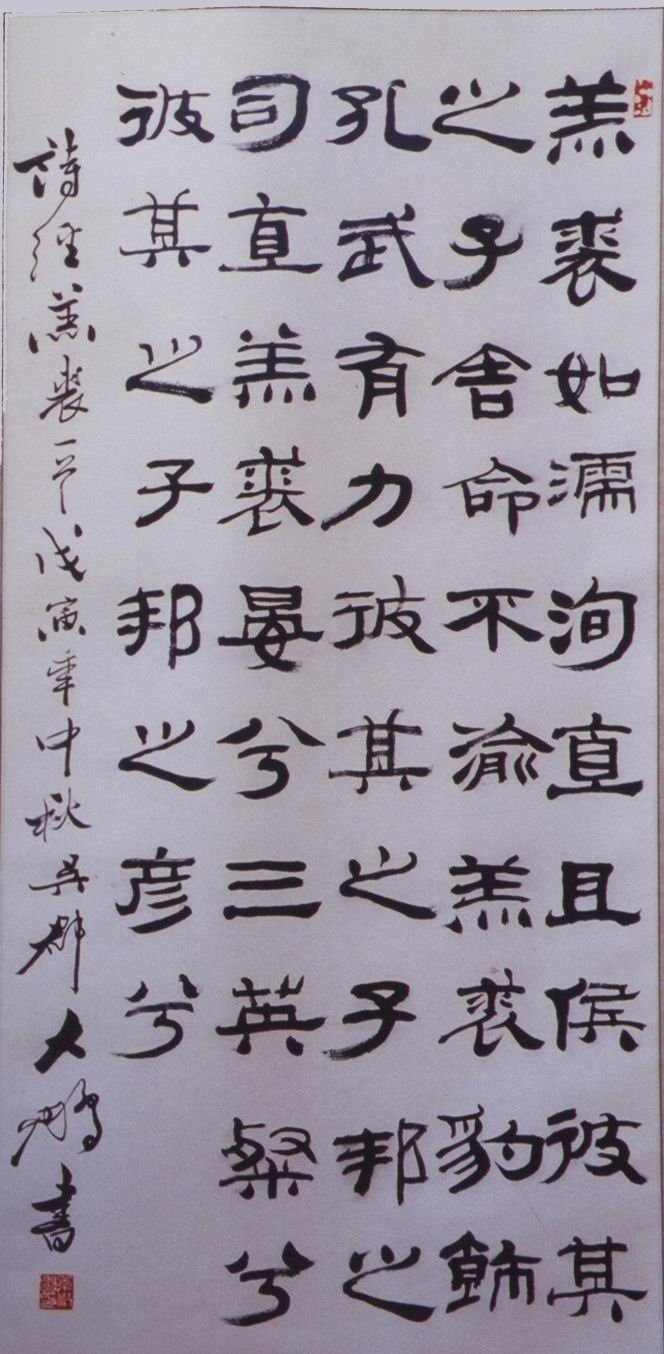 羔裘如濡洵直且侯彼其
之子舍命不渝羔裘豹飾
孔武有力彼其之子邦之
司直羔裘晏兮三英粲兮
彼其之子邦之彦兮
詩經羔裘一章戊寅年中秋吴郡大鵬書